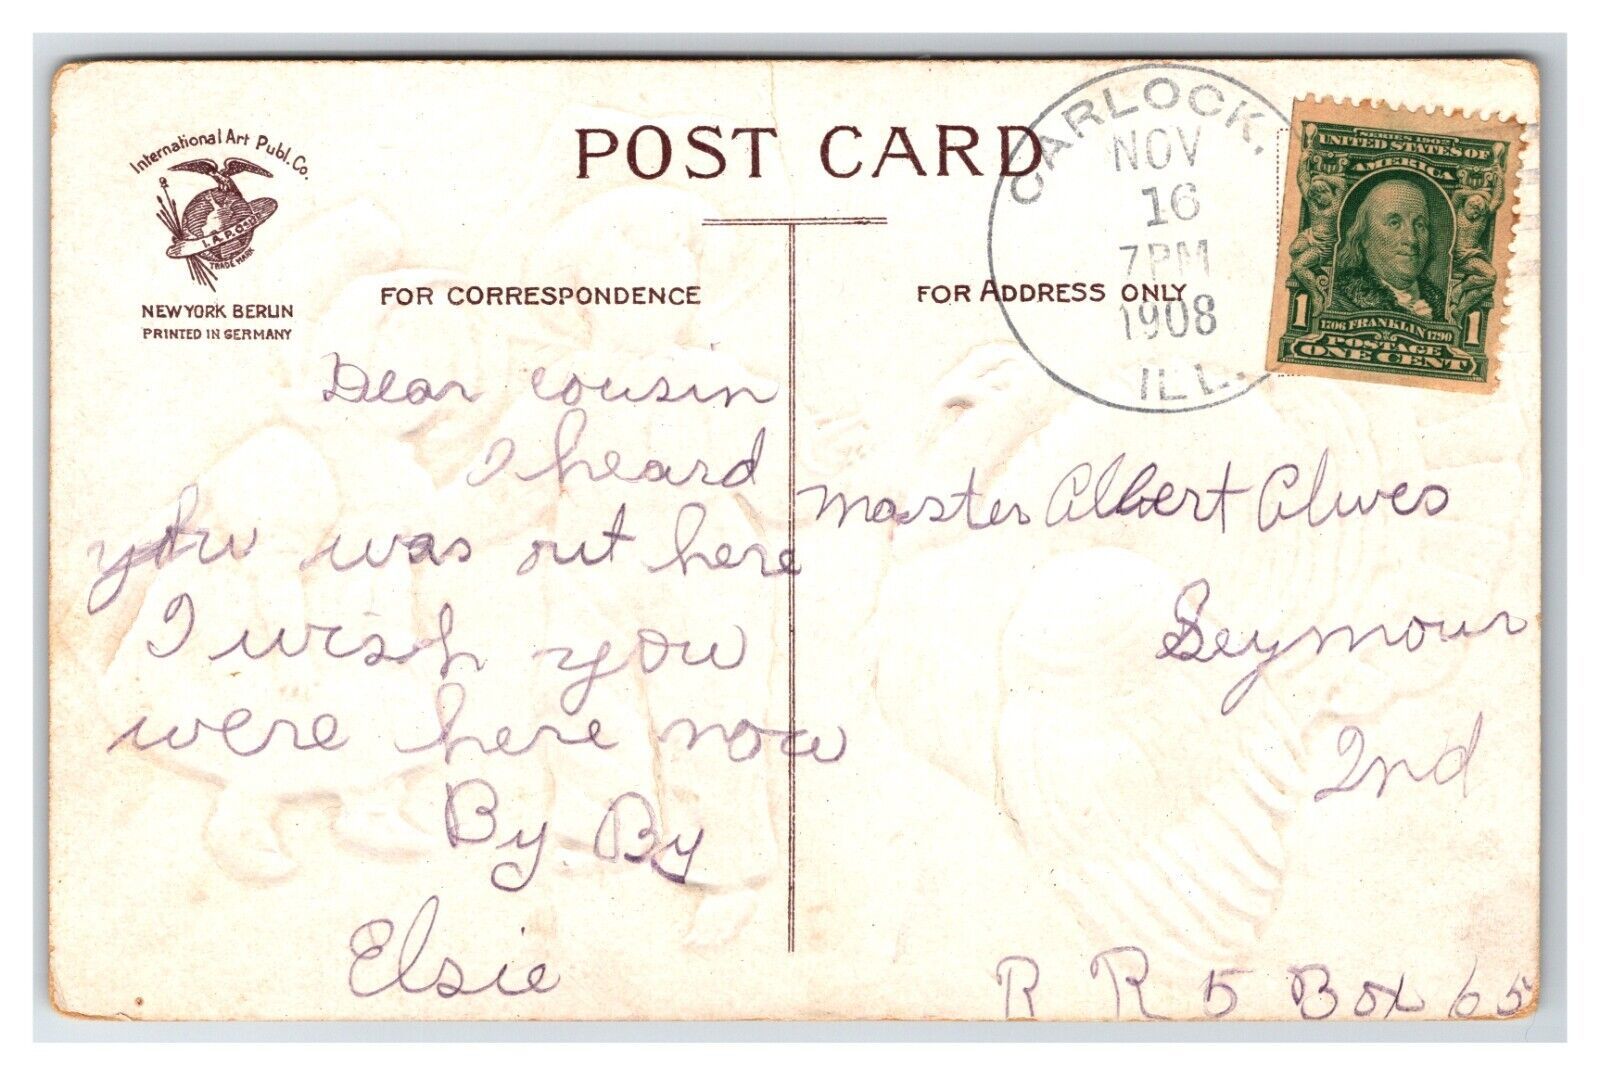 International Art Publ. Co.
I. A. P. Co.
TRADE MARK
NEW YORK BERLIN
PRINTED IN GERMANY
POST CARD
FOR CORRESPONDENCE
FOR ADDRESS ONLY
CARLOCK,
NOV
16
7 PM
1908
ILL.
SERIES 1902
UNITED STATES OF
AMERICA
1 1706 FRANKLIN 1790 1
POSTAGE
ONE CENT
Dear cousin
I heard
you was out here
I wish you
were here now
By By
Elsie
Master Albert Alwes
Seymour
Ind
R R 5 Box 65